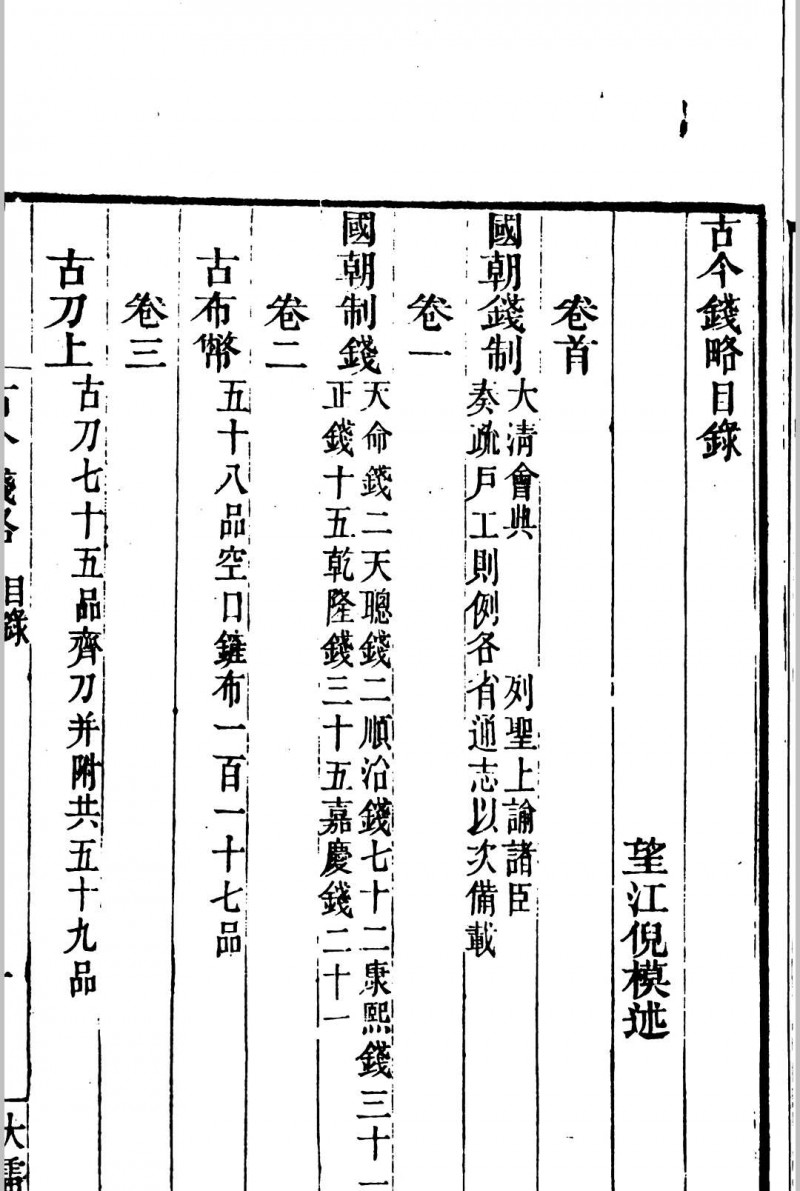 古今錢略目錄
望江倪模述
卷首
國朝錢制
大清會典 列聖上諭諸臣
奏疏戶工則例各省通志以次備載
卷一
國朝制錢
天命錢二天聰錢二順治錢七十二康熙錢三十一
正錢十五乾隆錢三十五嘉慶錢二十一
卷二
古布幣
五十八品空口鏟布一百一十七品
卷三
古刀上
古刀七十五品齊刀并附共五十九品
古今錢略 目錄
一
大雷